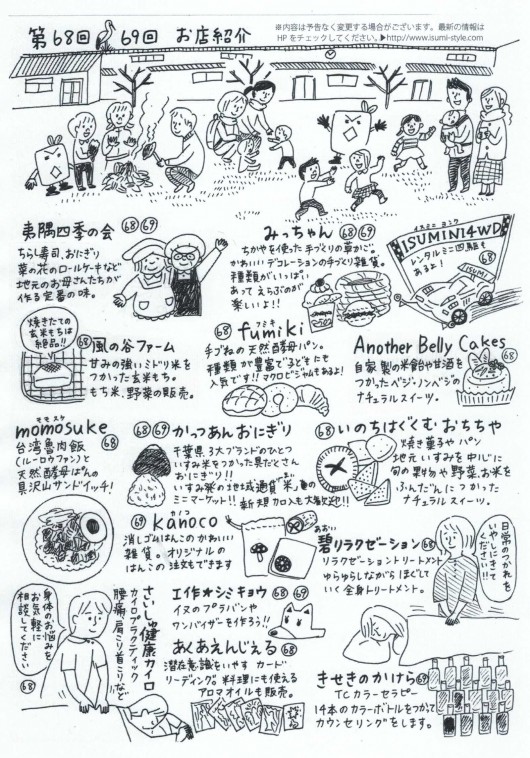 第68回 69回 お店紹介
※内容は予告なく変更する場合がございます。最新の情報は
HPをチェックしてください。▶http://www.isumi-style.com
夷隅四季の会 68 69
ちらし寿司、おにぎり
菜の花のロールケーキなど
地元のお母さんたちが
作る定番の味。
みっちゃん 68 69
ちがやを使った手づくりの草かご。
かわいいデコレーションの手づくり雑貨。
種類がいっぱい
あって えらぶのが
楽しいよ!!
イスミニ ヨンク
ISUMINI4WD
レンタルミニ四駆も
あるよ! 68
ISUMI
焼きたての
玄米もちは
絶品!!
68 風の谷ファーム
甘みの強いミドリ米を
つかった玄米もち。
もち米、野菜の販売。
フミキ
68 fumiki
手ごねの天然酵母パン。
種類が豊富で子どもにも
人気です!! マクロビジャムもあるよ!
Another Belly Cakes 68
自家製の米飴や甘酒を
つかったベジ・ノンベジの
ナチュラルスイーツ。
モモスケ
momosuke 68
台湾魯肉飯
(ルーロウファン)と
天然酵母ぱんの
具沢山サンドイッチ!
68 69 かっつぁんおにぎり
千葉県3大ブランドのひとつ
いすみ米をつかった具だくさん
おにぎり!!
いすみ発の地域通貨“米”の
ミニマーケット!! 新規加入も大歓迎!!
68 いのちはぐくむ おちちや
焼き菓子やパン
地元いすみを中心に
旬の果物や野菜、お米を
ふんだんにつかった
ナチュラルスイーツ。
カノコ
69 kanoco
消しゴムはんこのかわいい
雑貨。オリジナルの
はんこの注文もできます
あおい
碧リラクゼーション 68
リラクゼーショントリートメント
ゆらゆらしながら ほぐして
いく全身トリートメント。
日常のつかれを
いやしにきて
ください!!
身体のお悩みを
お気軽に
相談してください
68
さいしゅ健康カイロ
カイロプラクティック
腰痛、肩こり首こりなど
工作☆シミキョウ 68 69
イヌのプラバンや
ワンバイザーを作ろう!!
あくあえんじぇる 68
潜在意識をいやす カード
リーディング。料理にも使える
アロマオイルも販売。
きせきのかけら 69
TCカラーセラピー
14本のカラーボトルをつかって
カウンセリングをします。